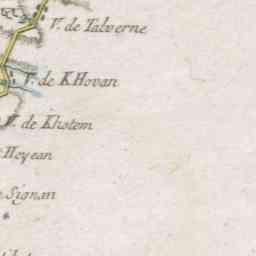 V. de Talverne
V. de KHovan
V. de Khotem
Hoyean
Signan